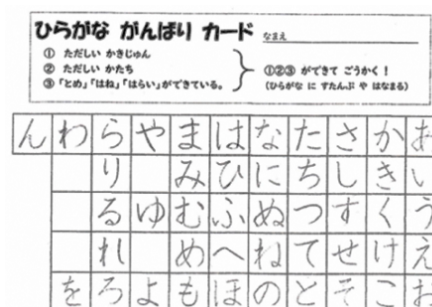 ひらがな がんばり カード
なまえ
① ただしい かきじゅん
② ただしい かたち
③「とめ」「はね」「はらい」ができている。
①②③ ができて ごうかく！
（ひらがな に すたんぷ や はなまる）
ん わ ら や ま は な た さ か あ
り み ひ に ち し き い
る ゆ む ふ ぬ つ す く う
れ め へ ね て せ け え
を ろ よ も ほ の と そ こ お